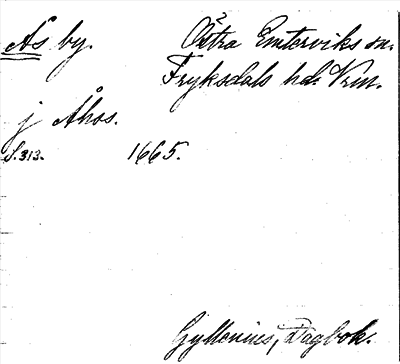 Ås by. Östra Emterviks sn.
Fryksdals hd. Vrm.
j Åhos.
S. 313. 1665.
Gyllenius, Dagbok.